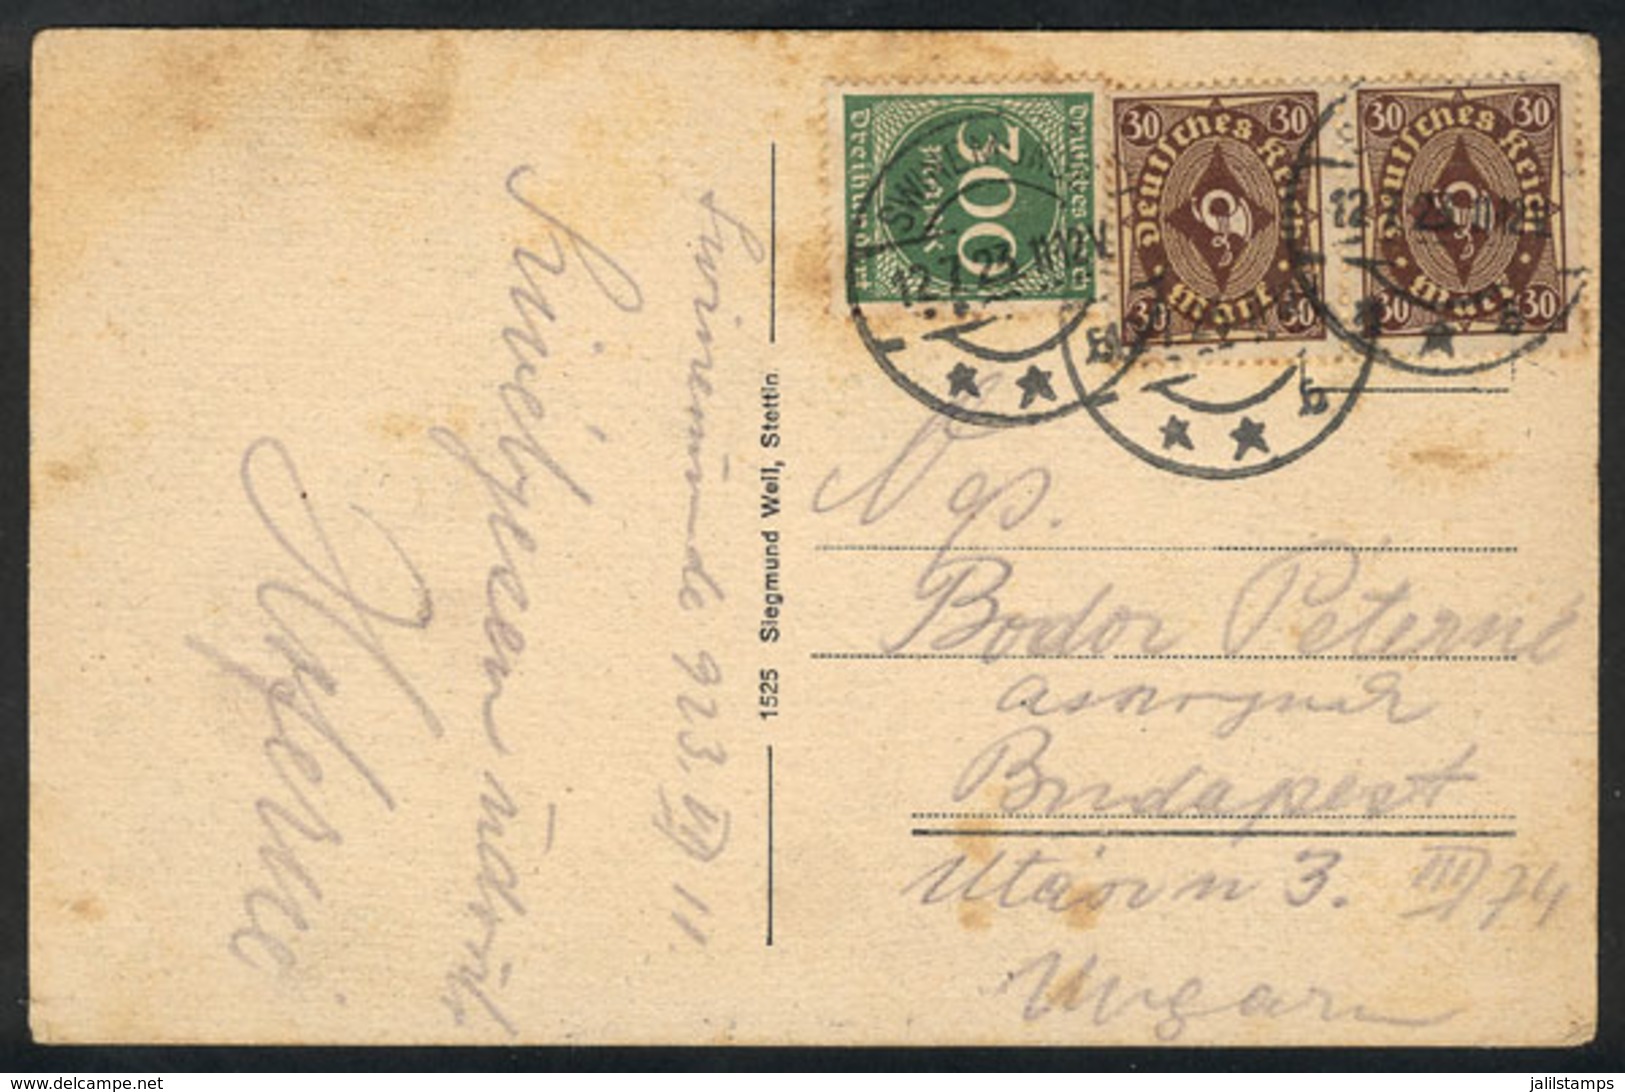 Swinemünde 923. VII 11.
Szivélyesen üdvözli
1525 Siegmund Weil, Stettin.
Deutsches Reich
300
Mark
Dreihundert
30 30
Deutsches Reich
Mark
30 30
30 30
Deutsches Reich
Mark
30 30
SWINEMÜNDE
12.7.23. 11-12 V.
12.7.23. 11-12 V.
b
b
Ngs.
Bodor Péterné
Budapest
3. III/74
Ungarn
jalilstamps